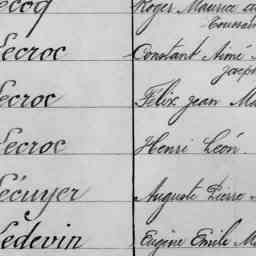 Roger Maurice
Lecroc Constant Aimé
Joseph
Lecroc Félix Jean
Lecroc Henri Léon
Lécuyer Auguste Pierre
Lédevin Eugène Emile